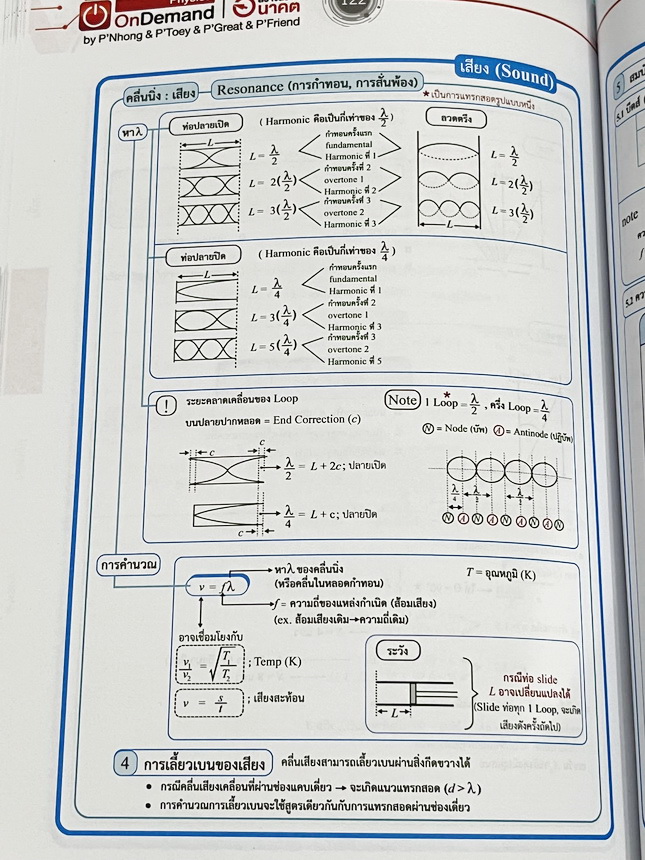 OnDemand
อนาคต
122
by P'Nhong & P'Toey & P'Great & P'Friend
เสียง (Sound)
คลื่นนิ่ง : เสียง
Resonance (การกำทอน, การสั่นพ้อง)
*เป็นการแทรกสอดรูปแบบหนึ่ง
หา λ
ท่อปลายเปิด
( Harmonic คือเป็นกี่เท่าของ λ/2 )
ลวดตรึง
L
L = λ/2
กำทอนครั้งแรก
fundamental
Harmonic ที่ 1
L = λ/2
L = 2(λ/2)
กำทอนครั้งที่ 2
overtone 1
Harmonic ที่ 2
L = 2(λ/2)
L = 3(λ/2)
กำทอนครั้งที่ 3
overtone 2
Harmonic ที่ 3
L = 3(λ/2)
L
ท่อปลายปิด
( Harmonic คือเป็นกี่เท่าของ λ/4 )
L
L = λ/4
กำทอนครั้งแรก
fundamental
Harmonic ที่ 1
L = 3(λ/4)
กำทอนครั้งที่ 2
overtone 1
Harmonic ที่ 3
L = 5(λ/4)
กำทอนครั้งที่ 3
overtone 2
Harmonic ที่ 5
!
ระยะคลาดเคลื่อนของ Loop
บนปลายปากหลอด = End Correction (c)
c
c
λ/2 = L + 2c ; ปลายเปิด
λ/4 = L + c ; ปลายปิด
c
Note
1 Loop* = λ/2 , ครึ่ง Loop = λ/4
N = Node (บัพ) A = Antinode (ปฏิบัพ)
λ/4 λ/2 λ/2
N A N A N A N A N
การคำนวณ
v = fλ
หา λ ของคลื่นนิ่ง
(หรือคลื่นในหลอดกำทอน)
T = อุณหภูมิ (K)
f = ความถี่ของแหล่งกำเนิด (ส้อมเสียง)
(ex. ส้อมเสียงเดิม→ความถี่เดิม)
อาจเชื่อมโยงกับ
v₁/v₂ = √(T₁/T₂) ; Temp (K)
v = s/t ; เสียงสะท้อน
ระวัง
L
กรณีท่อ slide
L อาจเปลี่ยนแปลงได้
(Slide ท่อทุก 1 Loop, จะเกิด
เสียงดังครั้งถัดไป)
4 การเลี้ยวเบนของเสียง คลื่นเสียงสามารถเลี้ยวเบนผ่านสิ่งกีดขวางได้
• กรณีคลื่นเสียงเคลื่อนที่ผ่านช่องแคบเดี่ยว → จะเกิดแนวแทรกสอด (d > λ)
• การคำนวณการเลี้ยวเบนจะใช้สูตรเดียวกันกับการแทรกสอดผ่านช่องเดี่ยว
5
5.1 บีตส์
note
5.2